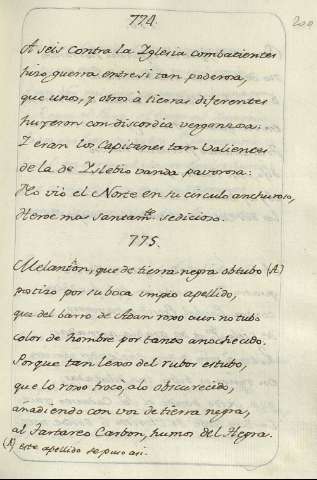 774.
200
A seis contra la Iglesia combatientes
hizo, guerra entre si tan poderosa,
que unos, y otros à tierras diferentes
huyeron con discordia vergonzosa:
I eran los Capitanes tan valientes
de la de Islebio vanda pavorosa:
No viò el Norte en su circulo anchuroso,
Heroe mas santamte sedicioso.
775.
Melanton, que de tierra negra obtubo (A)
postizo por su boca impio apellido,
que del barro de Adan roxo aun no tubo
color de hombre por tanto anochecido.
Porque tan lexos del rubor estubo,
que lo roxo trocò, à lo obscurecido,
añadiendo con voz de tierra negra,
al Tartareo Carbon, humos del Flegra.
(A) este apellido se puso asi.